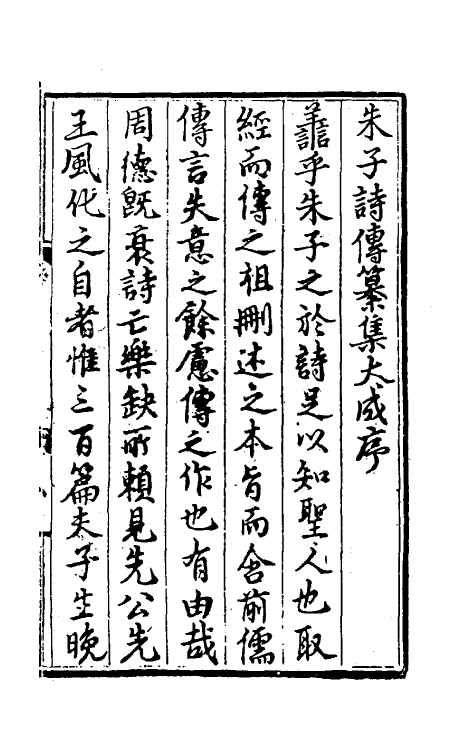 朱子詩傳纂集大成序
譱乎朱子之於詩足以知聖人也取
經而傳之祖刪述之本旨而舍前儒
傳言失意之餘慮傳之作也有由哉
周德旣衰詩亡樂缺所賴見先公先
王風化之自者惟三百篇夫子生晚